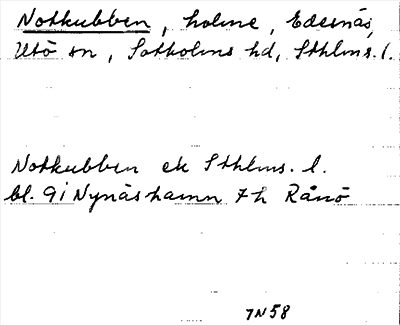 Notkubben, holme, Edesnäs,
Utö sn, Sotholms hd, Sthlms. l.
Notkubben ek Sthlms. l.
bl. 9i Nynäshamn 7h Rånö
7N58